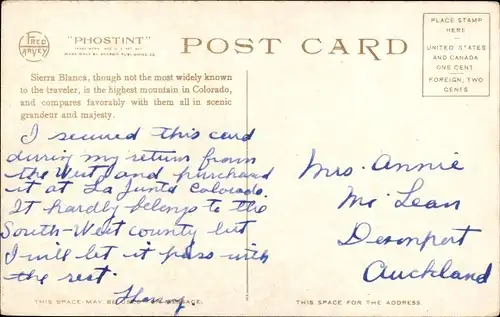 FRED
HARVEY
"PHOSTINT"
POST CARD
PLACE STAMP
HERE
UNITED STATES
AND CANADA
ONE CENT
FOREIGN, TWO
CENTS
Sierra Blanca, though not the most widely known
to the traveler, is the highest mountain in Colorado,
and compares favorably with them all in scenic
grandeur and majesty.
I secured this card
during my return from
the West and purchased
it at La Junta Colorado.
It hardly belongs to the
South-West county but
I will let it pass with
the rest.
Henry
Mrs. Annie
Mc Lean
Devonport
Auckland
THIS SPACE MAY BE USED FOR MESSAGE.
THIS SPACE FOR THE ADDRESS.